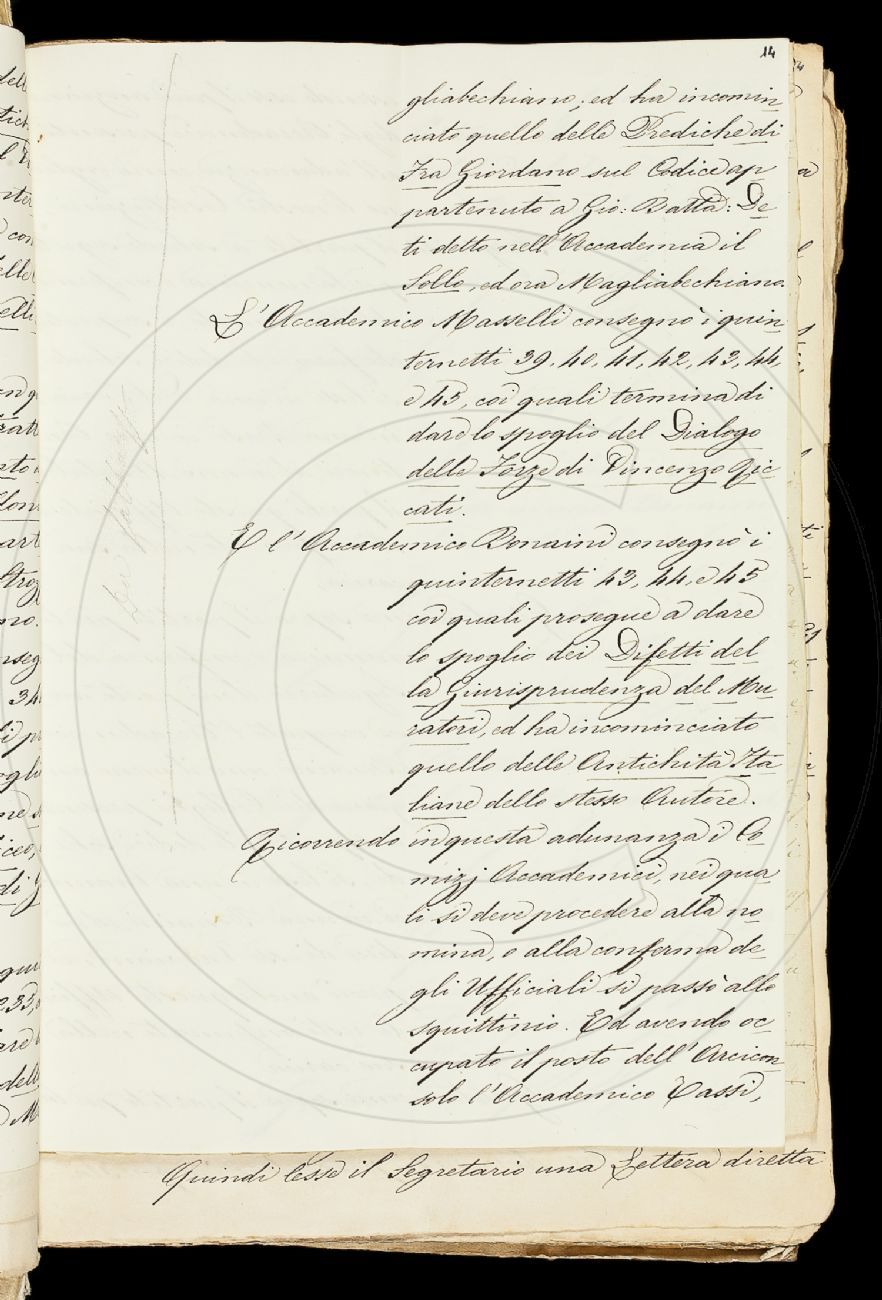 14
gliabechiano; ed ha incomin
ciato quello delle Prediche di
Fra Giordano sul Codice ap
partenuto a Gio: Batta: De
ti detto nell'Accademia il
Sollo, ed ora Magliabechiano.
L'Accademico Masselli consegnò i quin
ternetti 39, 40, 41, 42, 43, 44,
e 45, coi quali termina di
dare lo spoglio del Dialogo
delle Forze di Vincenzo Ric
cati.
E l'Accademico Bonaini consegnò i
quinternetti 43, 44, e 45
coi quali prosegue a dare
lo spoglio dei Difetti del
la Giurisprudenza del Mu
ratori, ed ha incominciato
quello delle Antichità Ita
liane dello stesso Autore.
Ricorrendo in questa adunanza i Co
mizj Accademici, nei qua
li si deve procedere alla no
mina, o alla conferma de
gli Ufficiali si passò allo
squittinio. Ed avendo oc
cupato il posto dell'Arcicon
solo l'Accademico Tassi,
Quindi lesse il Segretario una Lettera diretta